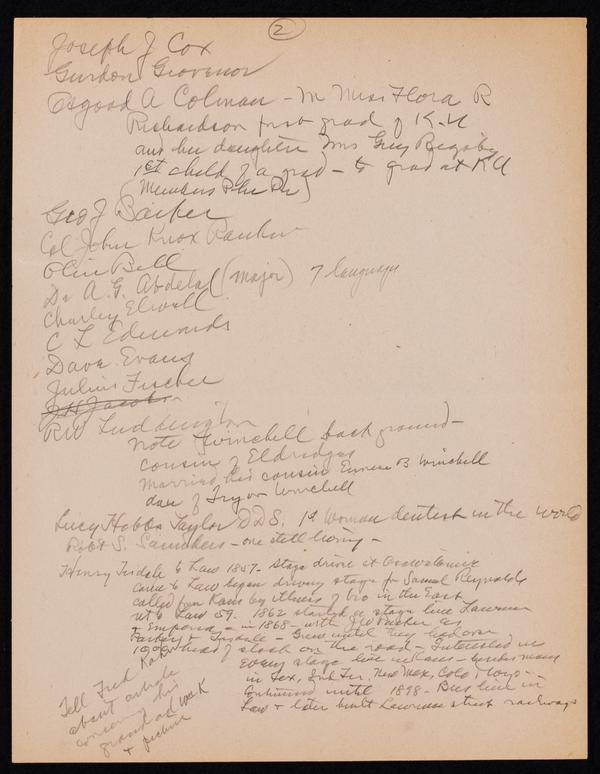 2
Joseph J Cox
Gurdon Grovenor
Osgood A Colman - m Miss Flora R
Richardson first grad of K.U
and her daughter Mrs Guy Bigsby
1st child of a grad - to grad at K U
(Members Phi Psi)
Geo J Barker
Col John Knox Rankin
Olin Bell
Dr A. G. Abdelal (Major) 7 languages
Charley Elwell
C L Edwards
Dave Evans
Julius Fischer
J H Jacobs
RW Luddington
Note Winchell background -
cousin of Eldridges
married his cousin Eunese B Winchell
dau of Winchell
Lucy Hobbs Taylor DDS. 1st Woman dentist in the world
Robt S. Saunders - one still living -
Henry Tisdale to Law 1857 - Stage driver at Osawatomie
came to Law began driving stage for Samuel Reynolds
called from Kans by illness of bro in the East
ret to Law 59. 1862 started a stage line Lawrence
+ Emporia - in 1868 - with J W Parker as
Parker + Tisdale - Grew until they had over
1900 head of stock on the road - Interested in
every stage line in Kans - besides many
in Tex, Ind Ter, New Mex, Colo, Wyo -
Continued until 1898 - Bus line in
Law + later built Lawrence street railways
Tell Fred
Kahn
about article
concerning his
grandad work
+ picture